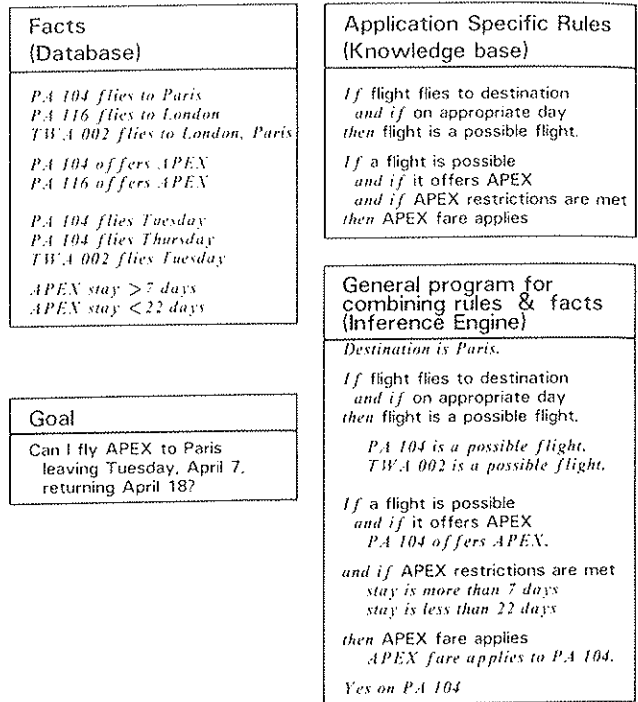 Facts
(Database)
PA 104 flies to Paris
PA 116 flies to London
TWA 002 flies to London, Paris
PA 104 offers APEX
PA 116 offers APEX
PA 104 flies Tuesday
PA 104 flies Thursday
TWA 002 flies Tuesday
APEX stay > 7 days
APEX stay < 22 days
Goal
Can I fly APEX to Paris
leaving Tuesday, April 7,
returning April 18?
Application Specific Rules
(Knowledge base)
If flight flies to destination
and if on appropriate day
then flight is a possible flight.
If a flight is possible
and if it offers APEX
and if APEX restrictions are met
then APEX fare applies
General program for
combining rules & facts
(Inference Engine)
Destination is Paris.
If flight flies to destination
and if on appropriate day
then flight is a possible flight.
PA 104 is a possible flight.
TWA 002 is a possible flight.
If a flight is possible
and if it offers APEX
PA 104 offers APEX.
and if APEX restrictions are met
stay is more than 7 days
stay is less than 22 days
then APEX fare applies
APEX fare applies to PA 104.
Yes on PA 104